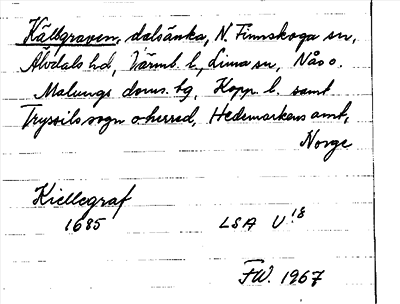 Källgraven, dalsänka, N. Finnskoga sn,
Älvdals hd, Värml. l., Lima sn, Nås o.
Malungs doms. bg, Kopp. l. samt
Trysils sogn o herred, Hedemarkens amt,
Norge
Kiellegraf
1685 LSA U 18
FW. 1967